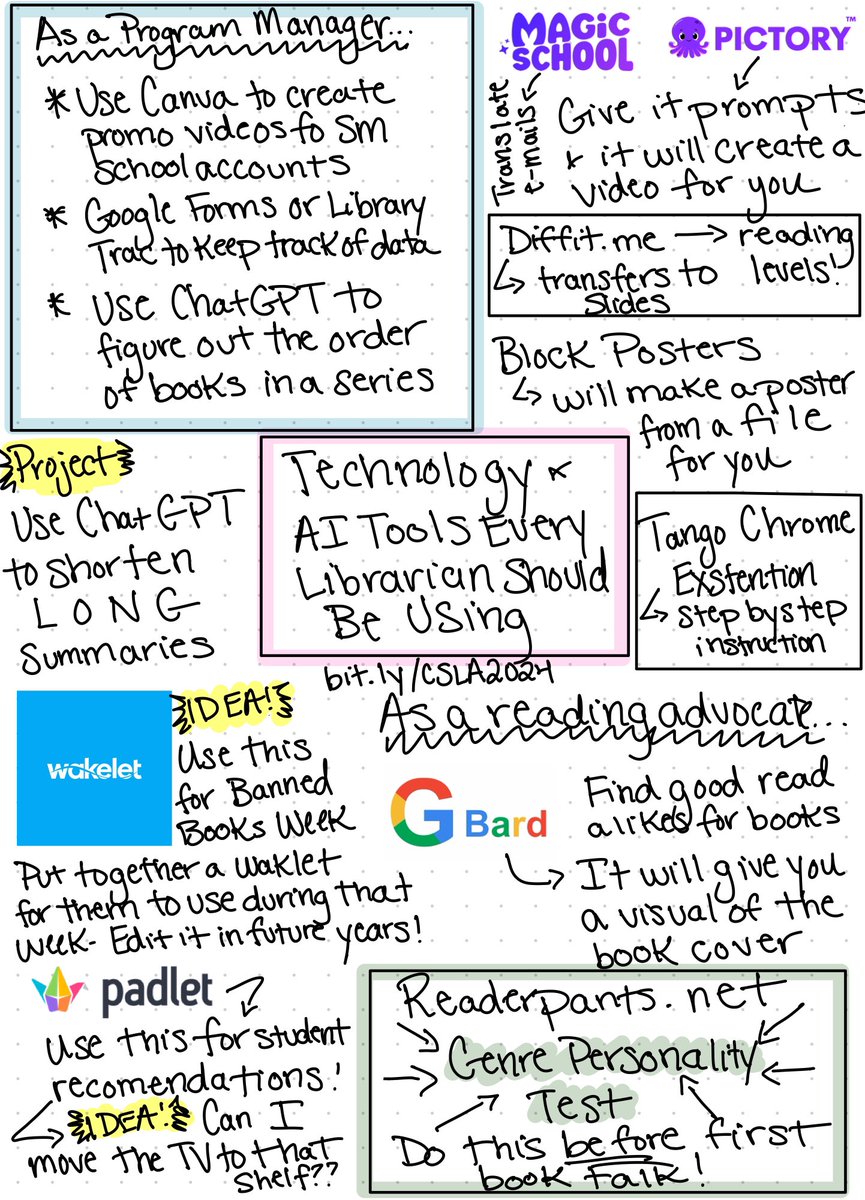 As a Program Manager...
* Use Canva to create
promo videos fo SM
school accounts
* Google Forms or Library
Trac to keep track of data
* Use ChatGPT to
figure out the order
of books in a series
MAGIC
SCHOOL
Translate
e-mails
PICTORY™
Give it prompts
& it will create a
video for you
Diffit.me → reading
levels!
↳ transfers to
Slides
Block Posters
↳ will make a poster
from a file
for you
Project
Use ChatGPT
to shorten
LONG
summaries
Technology &
AI Tools Every
Librarian Should
Be Using
bit.ly/CSLA2024
Tango Chrome
Exstention
↳ step by step
instruction
wakelet
IDEA!
Use this
for Banned
Books Week
Put together a Waklet
for them to use during that
week- Edit it in future years!
As a reading advocate...
G Bard
Find good read
alikes for books
↳ It will give you
a visual of the
book cover
padlet
Use this for student
recomendations!
IDEA! Can I
move the TV to that
shelf??
Readerpants.net
Genre Personality
Test
Do this before first
book talk!